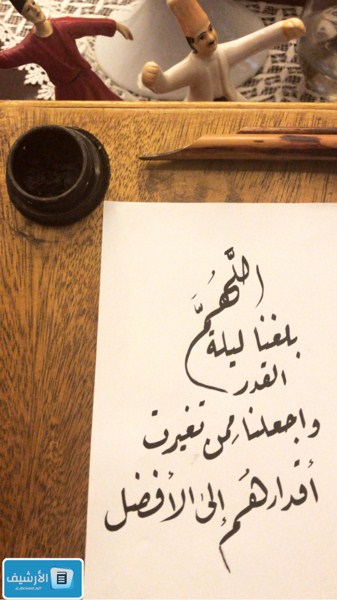 اللَّهُمَّ
بلغنا ليلة
القدر
واجعلنا مِمن تغيرت
أقدارهُم إلى الأفضل
الأرشيف